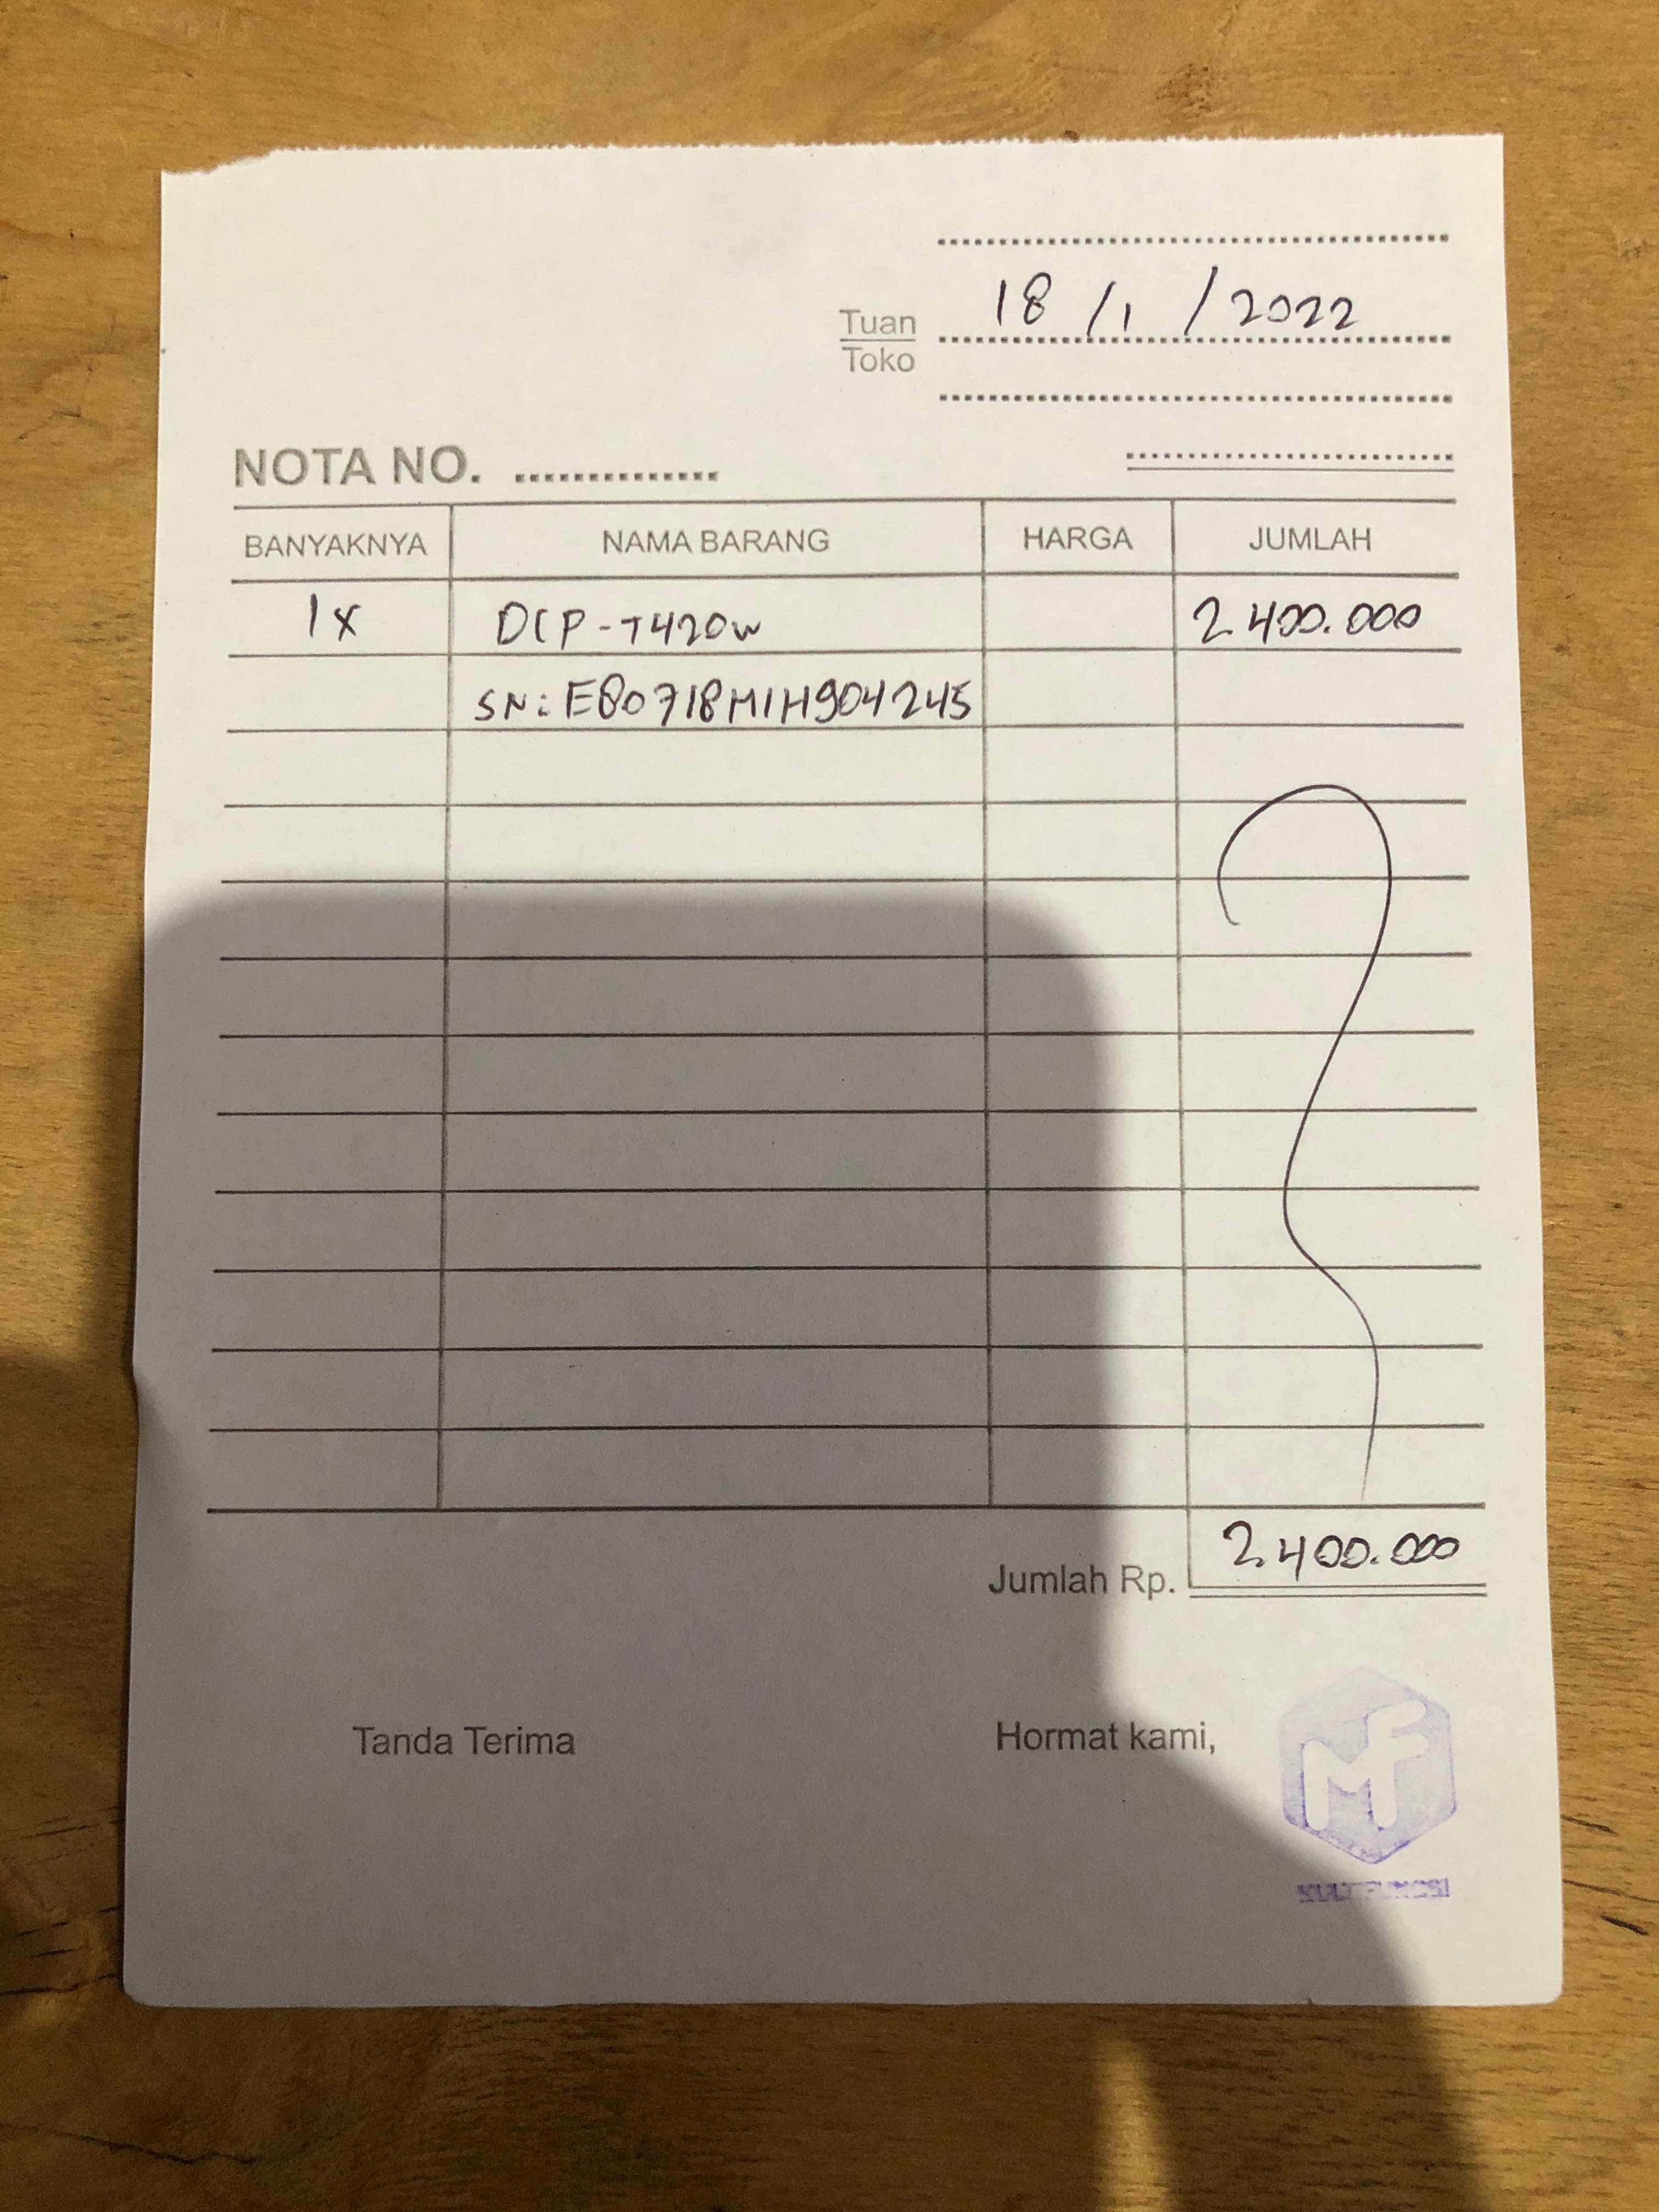 18/1/2022
Tuan
Toko
NOTA NO. ..............
BANYAKNYA NAMA BARANG HARGA JUMLAH
1x DCP-T420W 2.400.000
SN: E80718M1H904245
Jumlah Rp. 2.400.000
Tanda Terima Hormat kami,
MF